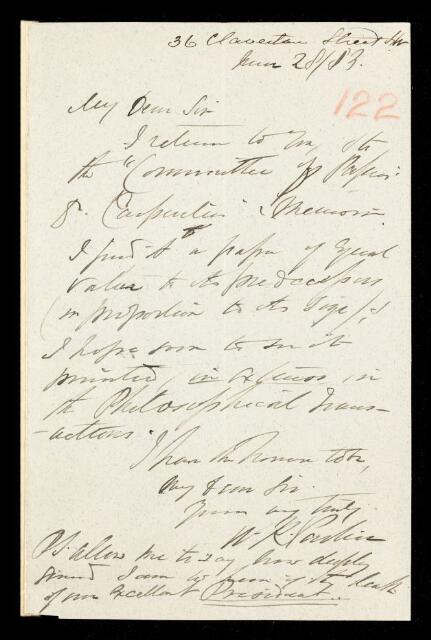 36 Claverton Street SW
June 28/83.
122
My Dear Sir
I return to you, for
the "Committee of Papers"
Dr. Carpenter's Memoir.
I find it to be a paper of Equal
Value to its predecessors
(in proportion to its size);
I hope soon to see it
printed, in extenso, in
the Philosophical Trans-
-actions.
I have the Honour to be,
My Dear Sir.
Yours very truly,
W. K. Parker
PS. allow me to say how deeply
grieved I am to hear of the death
of our Excellent President.